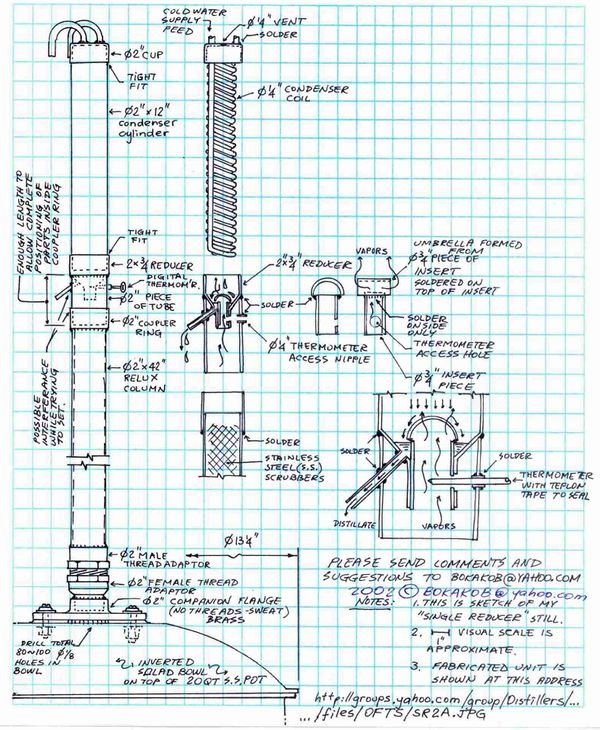 COLD WATER
SUPPLY
FEED
Ø¼" VENT
SOLDER
Ø2" CUP
TIGHT
FIT
Ø2"x12"
condenser
cylinder
Ø¼" CONDENSER
COIL
ENOUGH LENGTH TO
ALLOW COMPLETE
POSITIONING OF
PARTS INSIDE
COUPLER RING
TIGHT
FIT
2x¾ REDUCER
DIGITAL
THERMOM'R.
Ø2" PIECE
OF TUBE
Ø2" COUPLER
RING
Ø2"x42"
RELUX
COLUMN
POSSIBLE
INTERFERANCE
WHILE TRYING
TO SET.
2"x¾" REDUCER
SOLDER
Ø¼" THERMOMETER
ACCESS NIPPLE
VAPORS
UMBRELLA FORMED
FROM
Ø¾" PIECE OF
INSERT
SOLDORED ON
TOP OF INSERT
SOLDER
ON SIDE
ONLY
THERMOMETER
ACCESS HOLE
Ø¾" INSERT
PIECE
SOLDER
STAINLESS
STEEL (S.S.)
SCRUBBERS
SOLDER
SOLDER
THERMOMETER
WITH TEPLON
TAPE TO SEAL
DISTILLATE
VAPORS
Ø13¼"
Ø2" MALE
THREAD ADAPTOR
Ø2" FEMALE THREAD
ADAPTOR
Ø2" COMPANION FLANGE
(NO THREADS-SWEAT)
BRASS
DRILL TOTAL
80~100 Ø⅛
HOLES IN
BOWL
INVERTED
SALAD BOWL
ON TOP OF 20QT S.S. POT
PLEASE SEND COMMENTS AND
SUGGESTIONS TO BOKAKOB@YAHOO.COM
2002 © BOKAKOB@yahoo.com
NOTES: 1. THIS IS SKETCH OF MY
"SINGLE REDUCER" STILL.
2. 1" VISUAL SCALE IS
APPROXIMATE.
3. FABRICATED UNIT IS
SHOWN AT THIS ADDRESS
http://groups.yahoo.com/group/Distillers/...
.../files/OFTS/SR2A.JPG